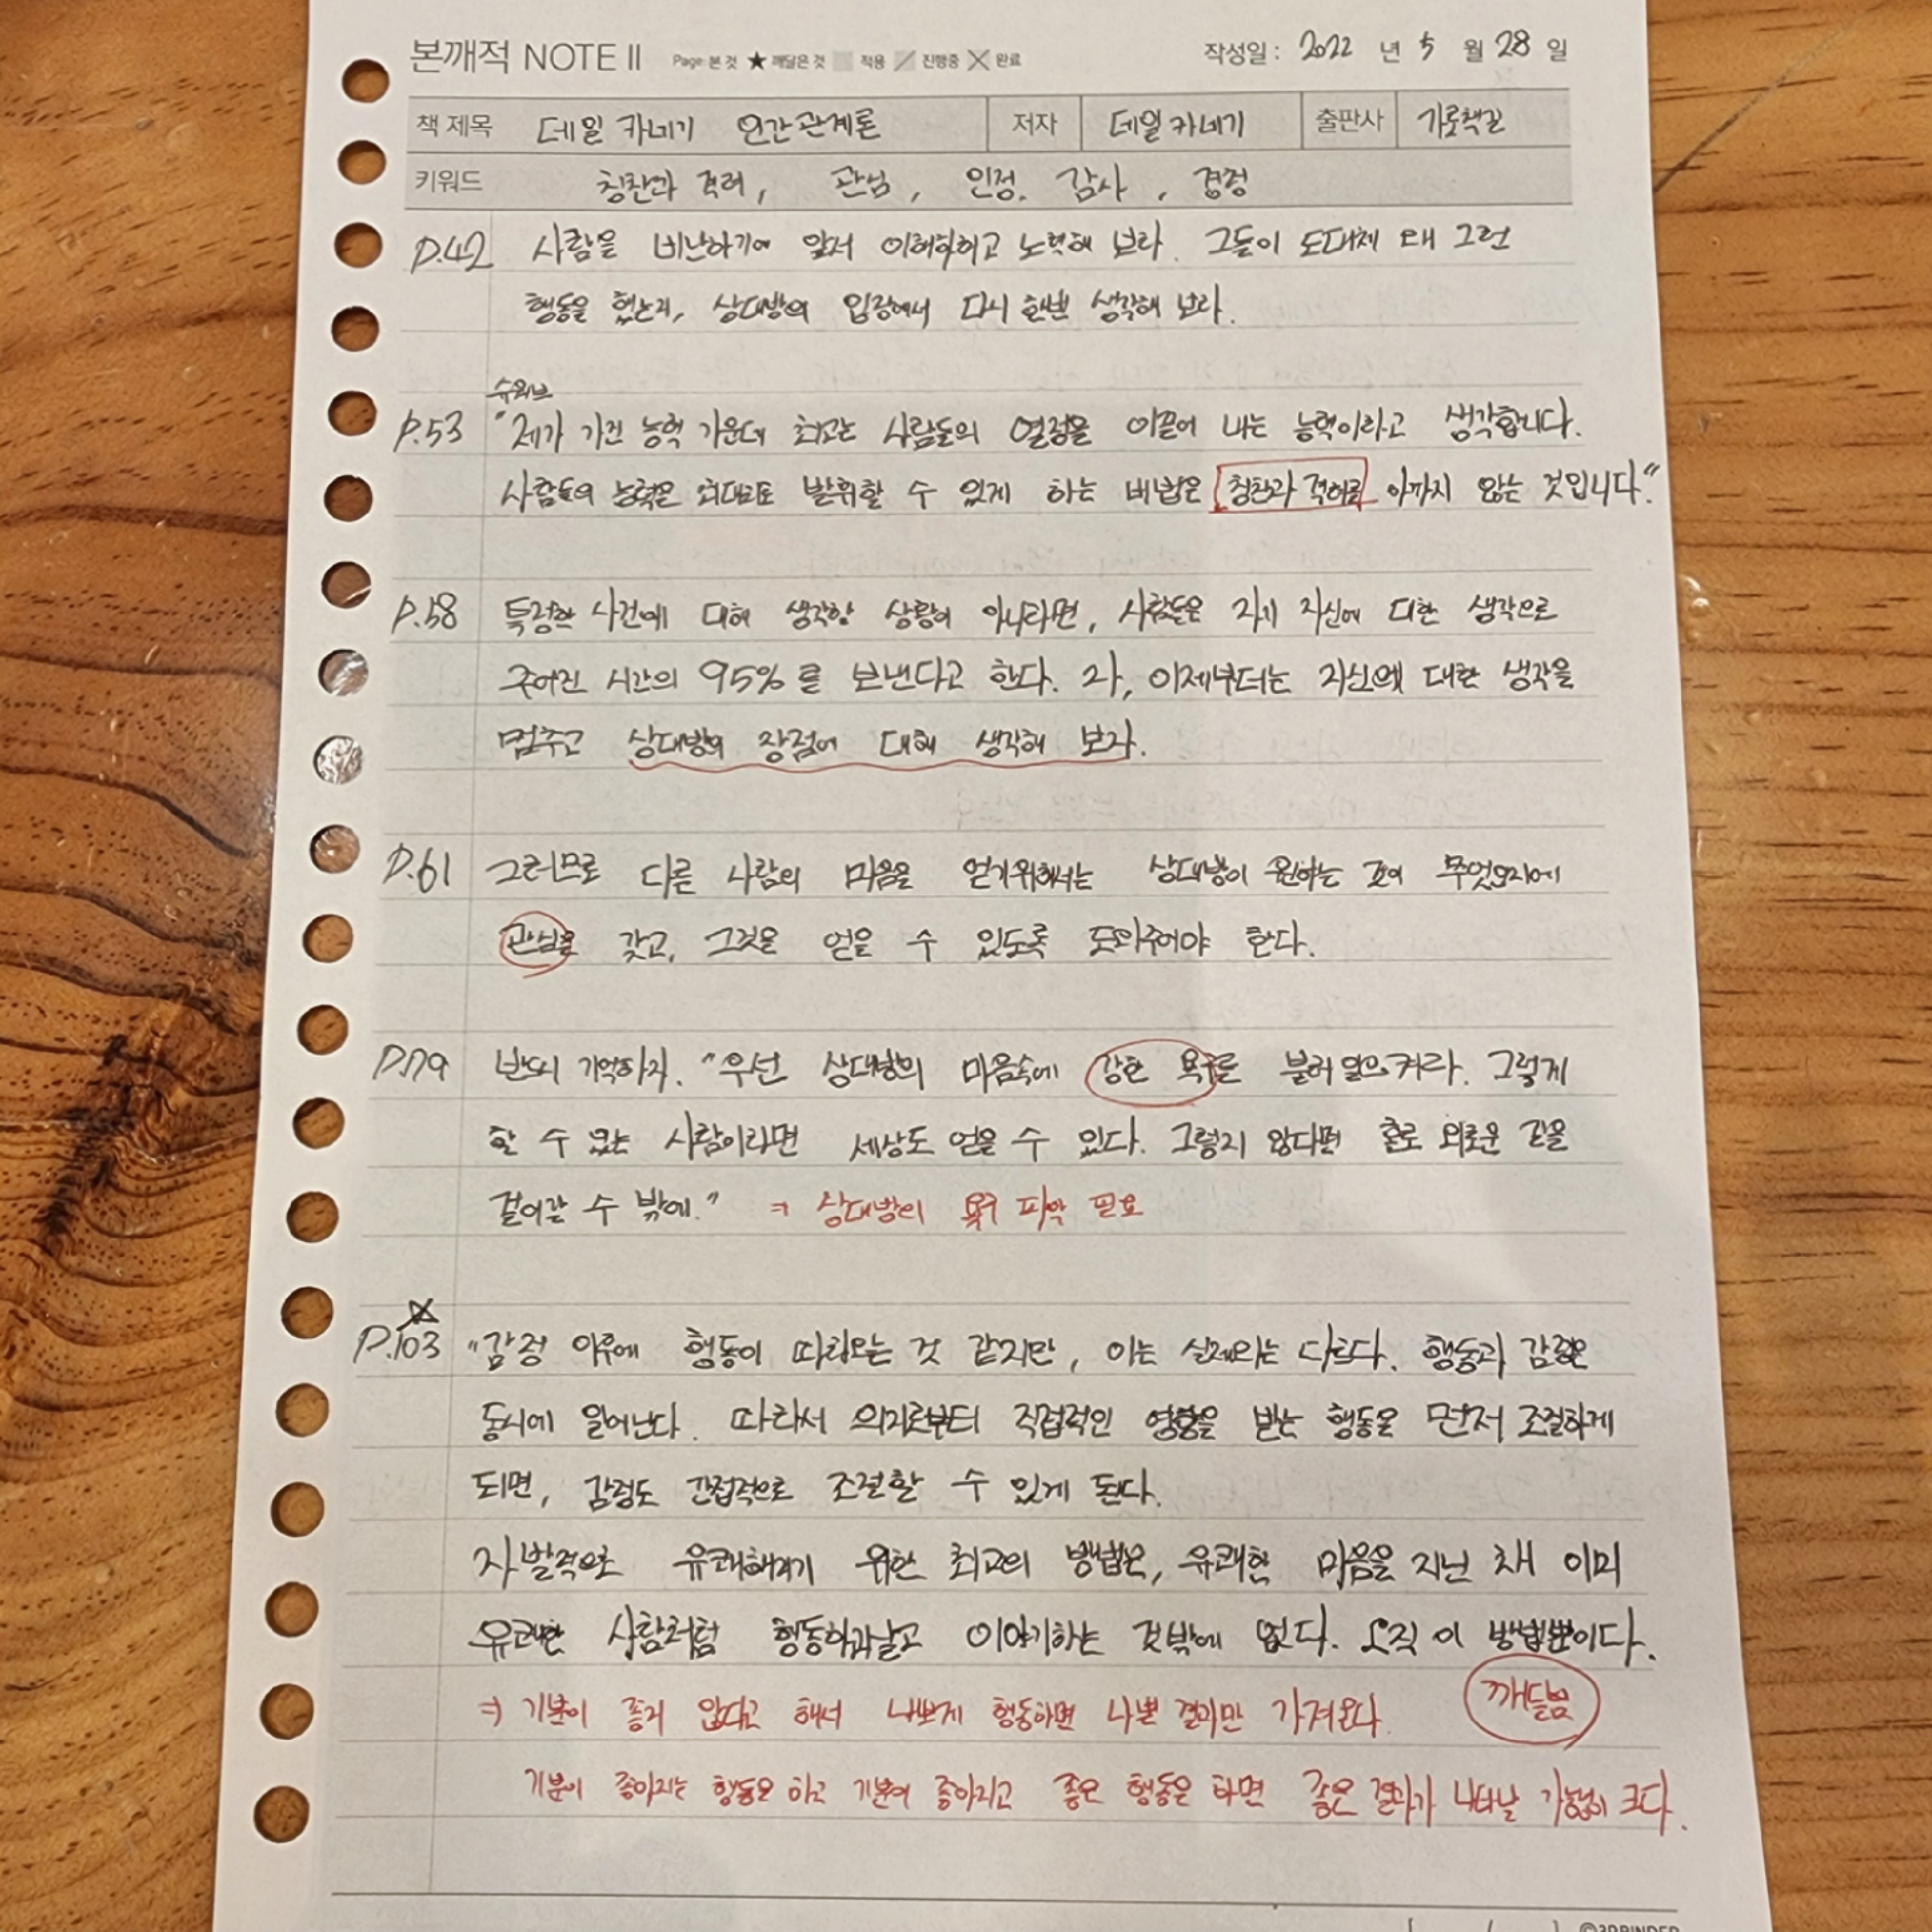 본깨적 NOTE II Page: 본 것 ★ 깨달은 것 적용 진행중 완료 작성일 : 2022 년 5 월 28 일
책 제목 데일 카네기 인간관계론 저자 데일 카네기 출판사 가로책길
키워드 칭찬과 격려, 관심, 인정. 감사, 경청
P.42 사람을 비난하기에 앞서 이해하려고 노력해 보라. 그들이 도대체 왜 그런
행동을 했는지, 상대방의 입장에서 다시 한번 생각해 보라.
슈와브
P.53 "제가 가진 능력 가운데 최고는 사람들의 열정을 이끌어 내는 능력이라고 생각합니다.
사람들의 능력을 최대로 발휘할 수 있게 하는 비법은 칭찬과 격려를 아끼지 않는 것입니다."
P.58 특정한 사건에 대해 생각할 상황이 아니라면, 사람들은 자기 자신에 대한 생각으로
주어진 시간의 95%를 보낸다고 한다. 자, 이제부터는 자신에 대한 생각을
멈추고 상대방의 장점에 대해 생각해 보자.
P.61 그러므로 다른 사람의 마음을 얻기위해서는 상대방이 원하는 것이 무엇인지에
관심을 갖고, 그것을 얻을 수 있도록 도와주어야 한다.
P.79 반드시 기억하자. "우선 상대방의 마음속에 강한 욕구를 불러 일으켜라. 그렇게
할 수 있는 사람이라면 세상도 얻을 수 있다. 그렇지 않다면 홀로 외로운 길을
걸어갈 수 밖에." ⇒ 상대방의 욕구 파악 필요
P.103 "감정 이후에 행동이 따라오는 것 같지만, 이는 실제와는 다르다. 행동과 감정은
동시에 일어난다. 따라서 의지로부터 직접적인 영향을 받는 행동을 먼저 조절하게
되면, 감정도 간접적으로 조절할 수 있게 된다.
자발적으로 유쾌해지기 위한 최고의 방법은, 유쾌한 마음을 지닌 채 이미
유쾌한 사람처럼 행동하고 이야기하는 것밖에 없다. 오직 이 방법뿐이다.
⇒ 기분이 좋지 않다고 해서 나쁘게 행동하면 나쁜 결과만 가져온다. 깨달음
기분이 좋아지는 행동을 하고 기분이 좋아지고 좋은 행동을 하면 좋은 결과가 나타날 가능성이 크다.